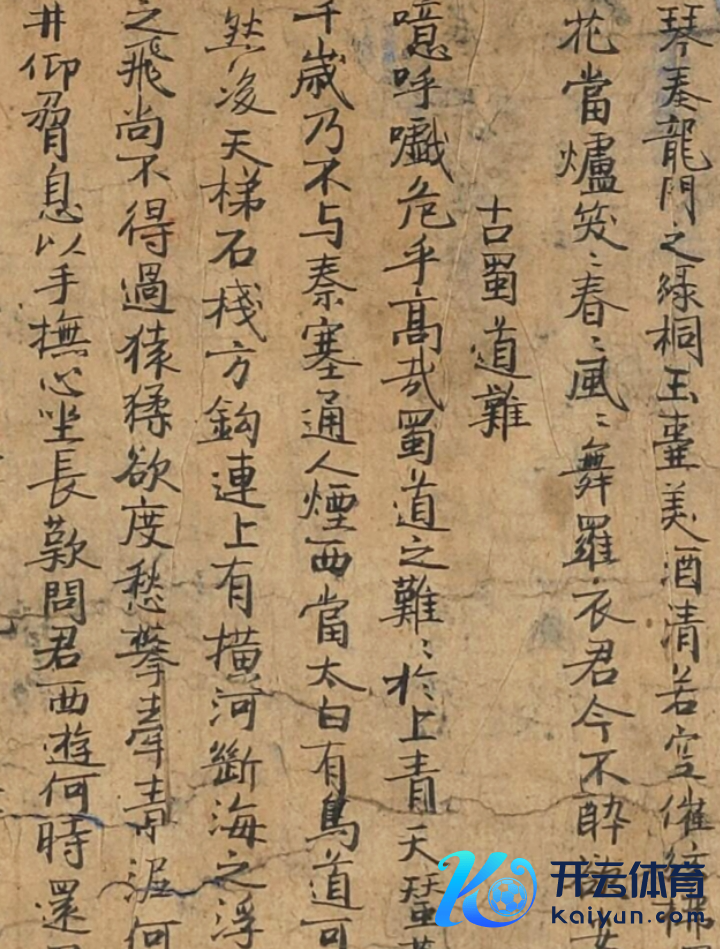 琴奏龍門之綠桐玉壺美酒清若空催絃拂
花當爐笑〻春〻風〻舞羅衣君今不醉
古蜀道難
噫呼嚱危乎高哉蜀道之難〻於上青天蚕
千歲乃不与秦塞通人煙西當太白有鳥道可
然後天梯石棧方鈎連上有橫河斷海之浮
之飛尚不得過猿猱欲度愁攀牽青泥何
井仰脅息以手撫心坐長歎問君西遊何時還
开云体育
kaiyun.com